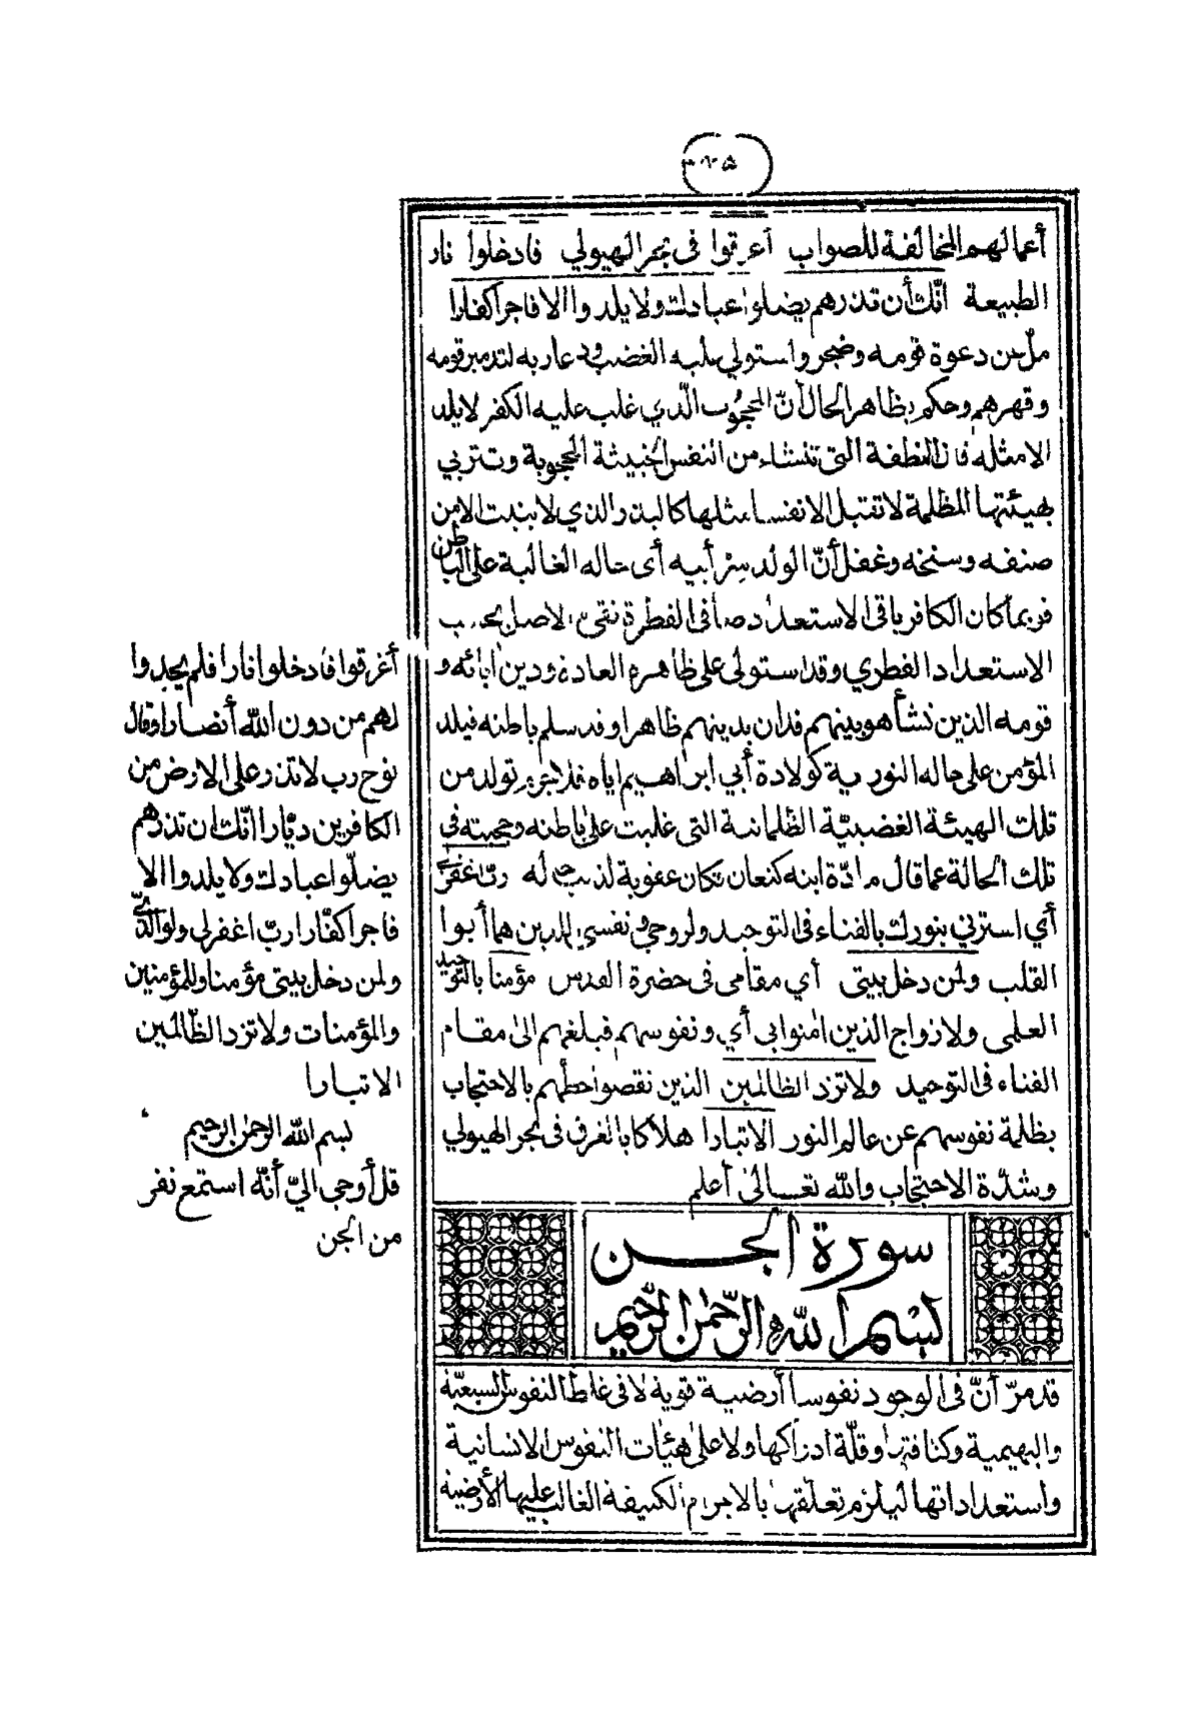 ٣٦٥
أعمالهم المخالفة للصواب أغرقوا فى بحر الهيولي فادخلوا نار
الطبيعة انّك أن تذرهم يضلوا عبادك ولا يلدوا الا فاجرا كفارا
ملّ من دعوة قومه وضجر واستولي عليه الغضب ودعا ربه لتدمير قومه
وقهرهم وحكم بظاهر الحال أنّ المحجوب الّذي غلب عليه الكفر لا يلد
الا مثله فان النطفة التى تنشاء من النفس الخبيثة المحجوبة وتتربي
بهيئتها المظلمة لا تقبل الا نفسا مثلها كالبذر الذي لا ينبت الا من
صنفه وسنخه وغفل أنّ الولد سرّ أبيه أى حاله الغالبة على الباطن
فربما كان الكافر باقى الاستعداد صافى الفطرة نقى الاصل بحسب
الاستعداد الفطري وقد استولى على ظاهره العادة ودين ابائه و
قومه الذين نشأ هو بينهم فدان بدينهم ظاهرا وقد سلم باطنه فيلد
المؤمن على حاله النورية كولادة أبي ابراهيم اياه فلا جرم تولد من
تلك الهيئة الغضبيّة الظلمانية التى غلبت على باطنه وحجبته فى
تلك الحالة عما قال مادّة ابنه كنعان فكان عقوبة لذنب حاله ربّ اغفر لى
أي استرني بنورك بالفناء فى التوحيد ولروحي ونفسي الذين هما أبوا
القلب ولمن دخل بيتى أي مقامى فى حضرة القدس مؤمنا بالتوحيد
العلمى ولازواج الذين امنوا بى أي ونفوسهم فبلغهم الى مقام
الفناء فى التوحيد ولا تزد الظالمين الذين نقصوا حظّهم بالاحتجاب
بظلمة نفوسهم عن عالم النور الا تبارا هلاكا بالغرق فى بحر الهيولي
وشدّة الاحتجاب والله تعالى أعلم
أغرقوا فادخلوا نارا فلم يجدوا
لهم من دون الله أنصارا وقال
نوح رب لا تذر على الارض من
الكافرين ديّارا انّك ان تذرهم
يضلّوا عبادك ولا يلدوا الا
فاجرا كفّارا ربّ اغفر لى ولوالدىّ
ولمن دخل بيتى مؤمنا وللمؤمنين
والمؤمنات ولا تزد الظّالمين
الا تبارا
بسم الله الرحمن الرحيم
قل أوحي اليّ أنّه استمع نفر
من الجن
سورة الجن
بسم الله الرّحمن الرّحيم
قد مرّ أنّ فى الوجود نفوسا أرضية قوية لا فى غلظ النفوس السبعيّة
والبهيمية وكثافتها وقلّة ادراكها ولا على هيئات النفوس الانسانية
واستعداداتها ليلزم تعلّقها بالاجرام الكثيفة الغالب عليها الأرضية